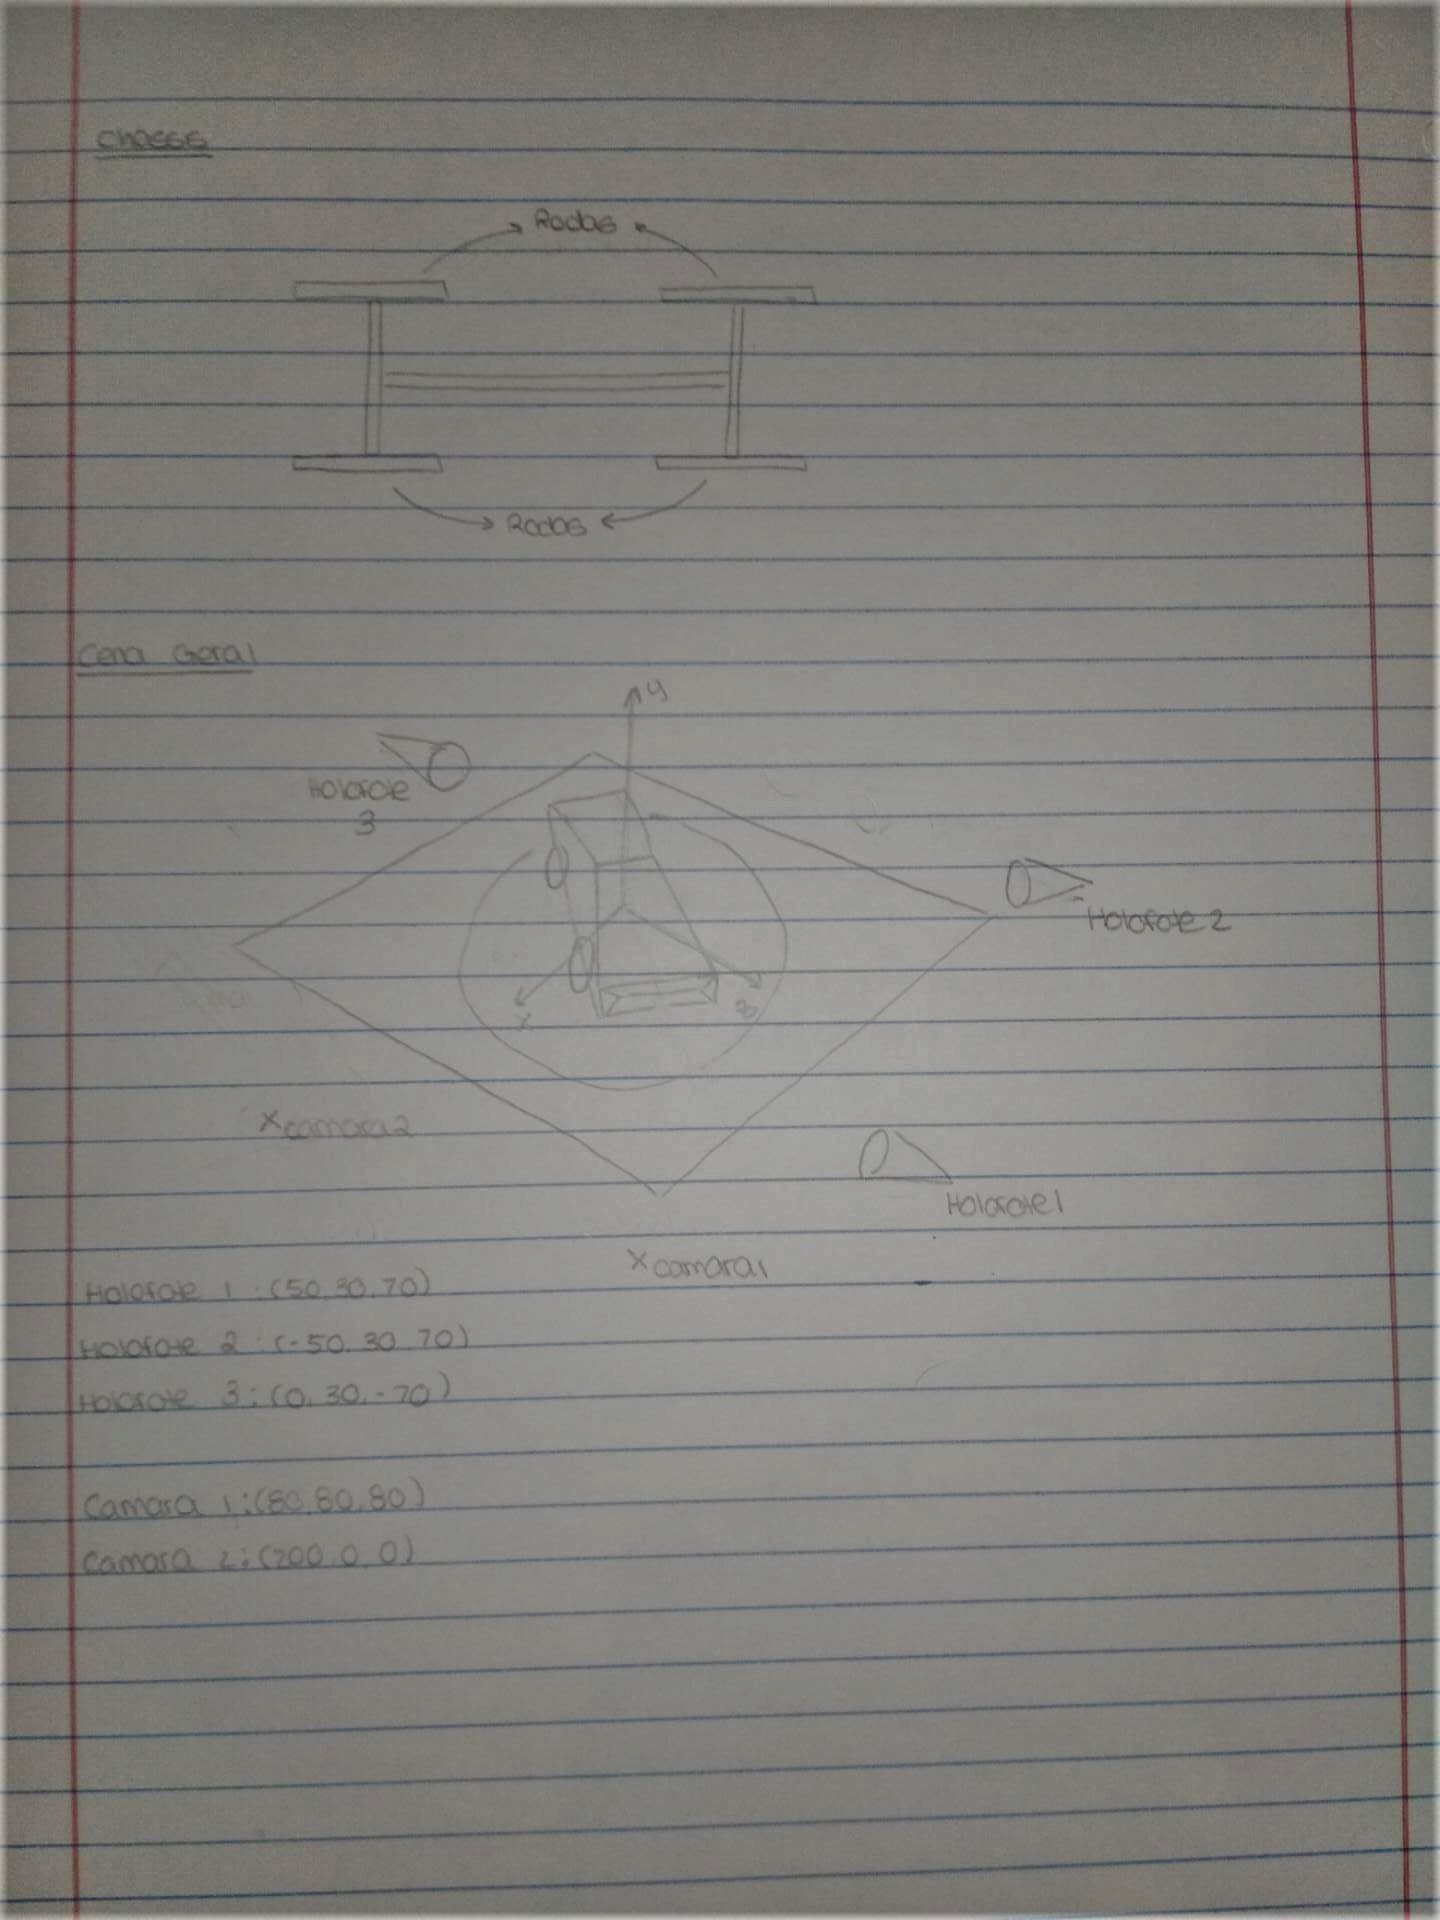 Chassis
Rodas
Rodas
Cena Geral
y
Holofote
3
Holofote 2
x
z
x camara 2
Holofote 1
x camara 1
Holofote 1 : (50, 30, 70)
Holofote 2 : (-50, 30, 70)
Holofote 3 : (0, 30, -70)
Camara 1 : (80, 80, 80)
Camara 2 : (200, 0, 0)